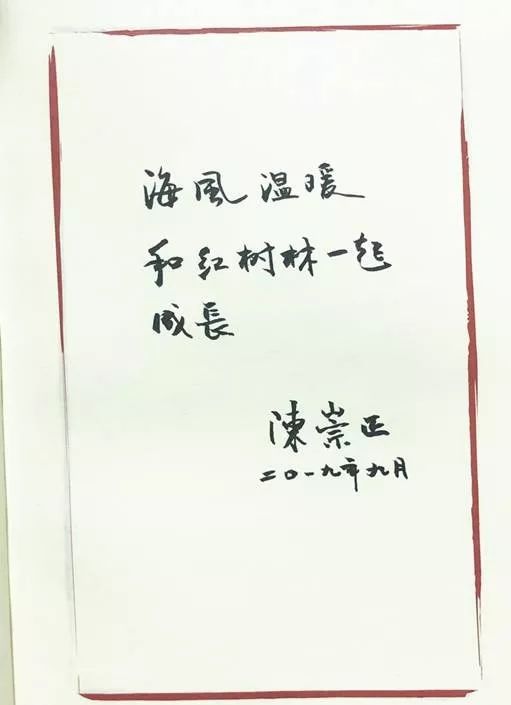 海風温暖
和红树林一起
成長
陳崇正
二〇一九年九月